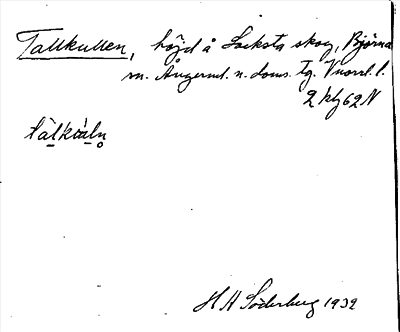 Tallkullen, höjd å Locksta skog, Björna
sn. Ångerml. n. doms. tg. Vnorrl. l.
2 kbg 62 N
tàlkùln̥
H A Söderberg 1932